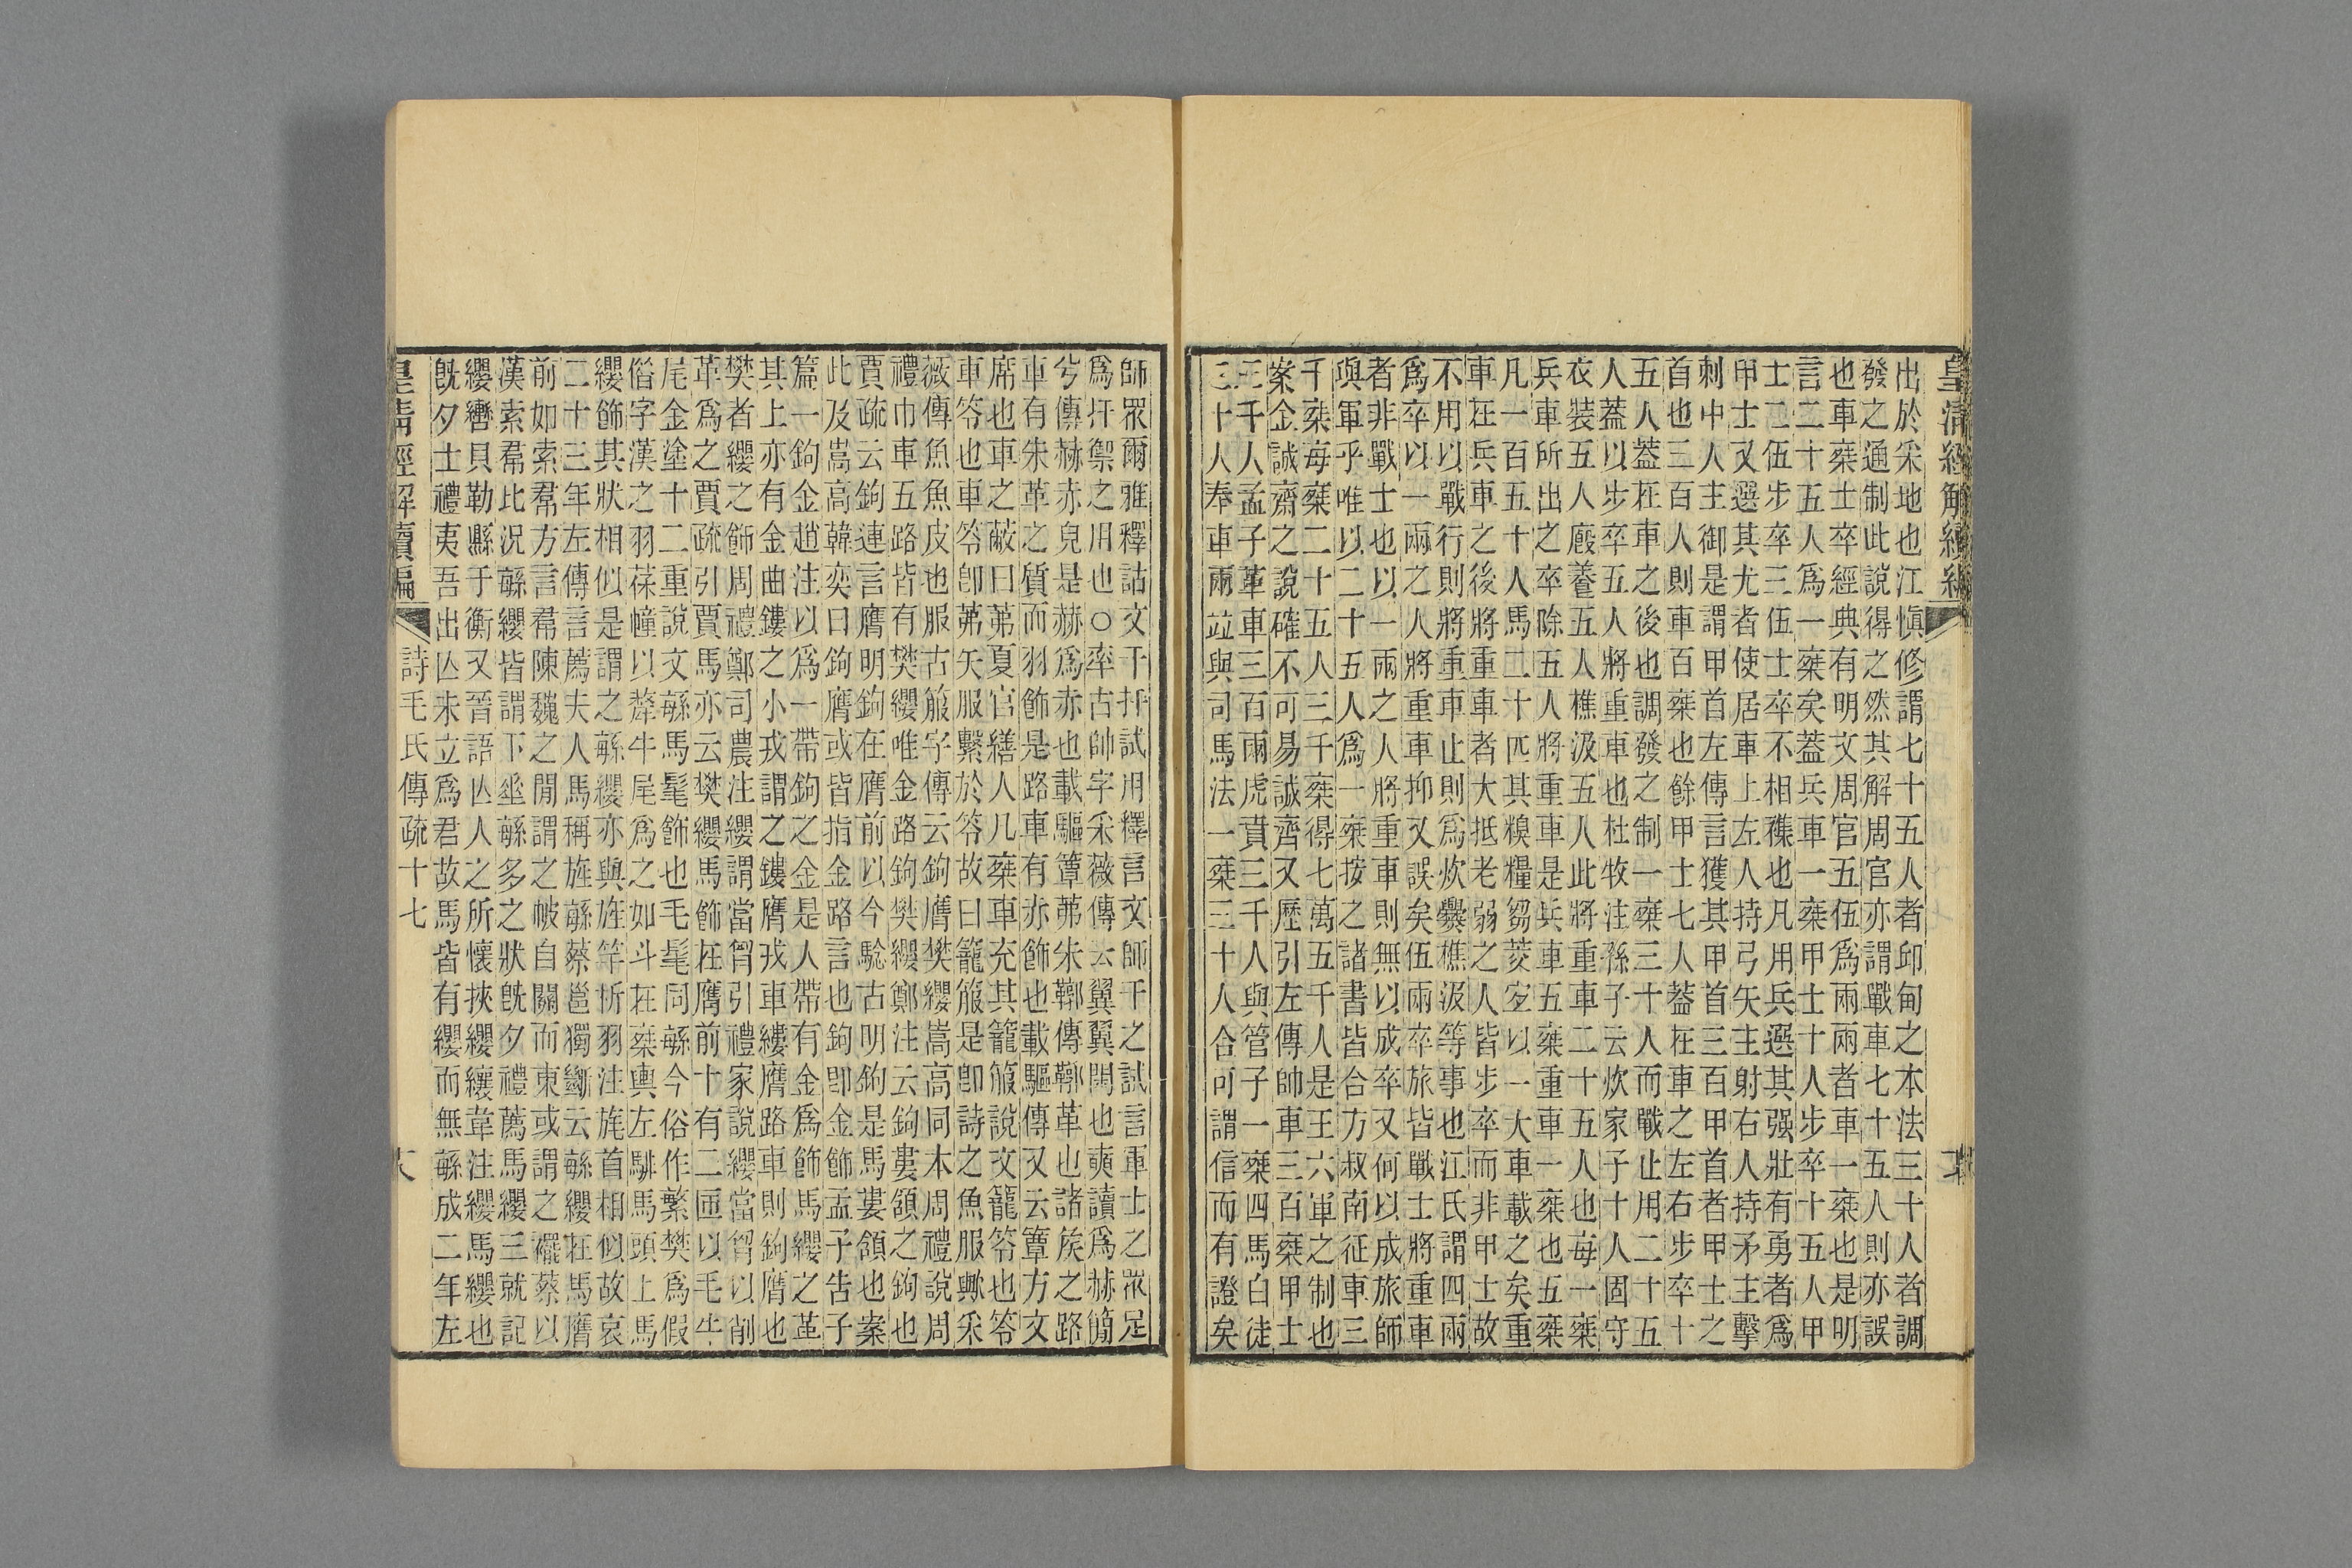 皇清經解續編
出於采地也江愼修謂七十五人者邱甸之本法三十人者調
發之通制此說得之然其解周官亦謂戰車七十五人則亦誤
也車椉士卒經典有明文周官五伍爲兩兩者車一椉也是明
言二十五人爲一椉矣蓋兵車一椉甲士十人步卒十五人甲
士二伍步卒三伍士卒不相襍也凡用兵選其强壯有勇者爲
甲士又選其尤者使居車上左人持弓矢主射右人持矛主擊
刺中人主御是謂甲首左傳言獲其甲首三百甲首者甲士之
首也三百人則車百椉也餘甲士七人蓋在車之左右步卒十
五人蓋在車之後也調發之制一椉三十人而戰止用二十五
人蓋以步卒五人將重車也杜牧注孫子云炊家子十人固守
衣裝五人廄養五人樵汲五人此將重車二十五人也每一椉
兵車所出之卒除五人將重車是兵車五椉重車一椉也五椉
凡一百五十人馬二十匹其糗糧芻茭㚇以一大車載之矣重
車在兵車之後將重車者大抵老弱之人皆步卒而非甲士故
不用以戰行則將重車止則爲炊爨樵汲等事也江氏謂四兩
爲卒以一兩之人將重車抑又誤矣伍兩卒旅皆戰士將重車
者非戰士也以一兩之人將重車則無以成卒又何以成旅師
與軍乎唯以二十五人爲一椉按之諸書皆合方叔南征車三
千椉每椉二十五人三千椉得七萬五千人是王六軍之制也
案金誠齋之說確不可易誠齊又歷引左傳帥車三百椉甲士
三千人孟子革車三百兩虎賁三千人與管子一椉四馬白徒
三十人奉車兩竝與司馬法一椉三十人合可謂信而有證矣
師眾爾雅釋詁文干扞試用釋言文師干之試言軍士之眾足
爲扞禦之用也○率古帥字采薇傳云翼翼閑也奭讀爲赫簡
兮傳赫赤皃是赫爲赤也載驅簟茀朱鞹傳鞹革也諸矦之路
車有朱革之質而羽飾是路車有亦飾也載驅傳又云簟方文
席也車之蔽曰茀夏官繕人凡椉車充其籠箙說文籠笭也笭
車笭也車笭卽茀矢服繫於笭故曰籠箙是卽詩之魚服歟采
薇傳魚魚皮也服古箙字傳云鉤膺樊纓嵩高同本周禮說周
禮巾車五路皆有樊纓唯金路鉤樊纓鄭注云鉤婁頷之鉤也
賈疏云鉤連言膺明鉤在膺前以今驗古明鉤是馬婁頷也案
此及嵩高韓奕曰鉤膺或皆指金路言也鉤卽金飾孟子告子
篇一鉤金趙注以爲一帶鉤之金是人帶有金爲飾馬纓之革
其上亦有金曲鏤之小戎謂之鏤膺戎車縷膺路車則鉤膺也
樊者纓之飾周禮鄭司農注纓謂當胷引禮家說纓當胷以削
革爲之賈疏引賈馬亦云樊纓馬飾在膺前十有二匝以毛牛
尾金塗十二重說文緐馬髦飾也毛髦同緐今俗作繁樊爲假
俗字漢之羽葆幢以犛牛尾爲之如斗在椉輿左騑馬頭上馬
纓飾其狀相似是謂之緐纓亦與旌竿析羽注旄首相似故哀
二十三年左傳言薦夫人馬稱旌緐蔡邕獨斷云緐纓在馬膺
前如索帬方言帬陳魏之閒謂之帔自關而東或謂之襬蔡以
漢索帬比況緐纓皆謂下垂緐多之狀旣夕禮薦馬纓三就記
纓轡貝勒縣于衡又晉語亾人之所懷挾纓纕韋注纓馬纓也
旣夕士禮夷吾出亾未立爲君故馬皆有纓而無緐成二年左
皇清經解續編
詩毛氏傳疏十七
六